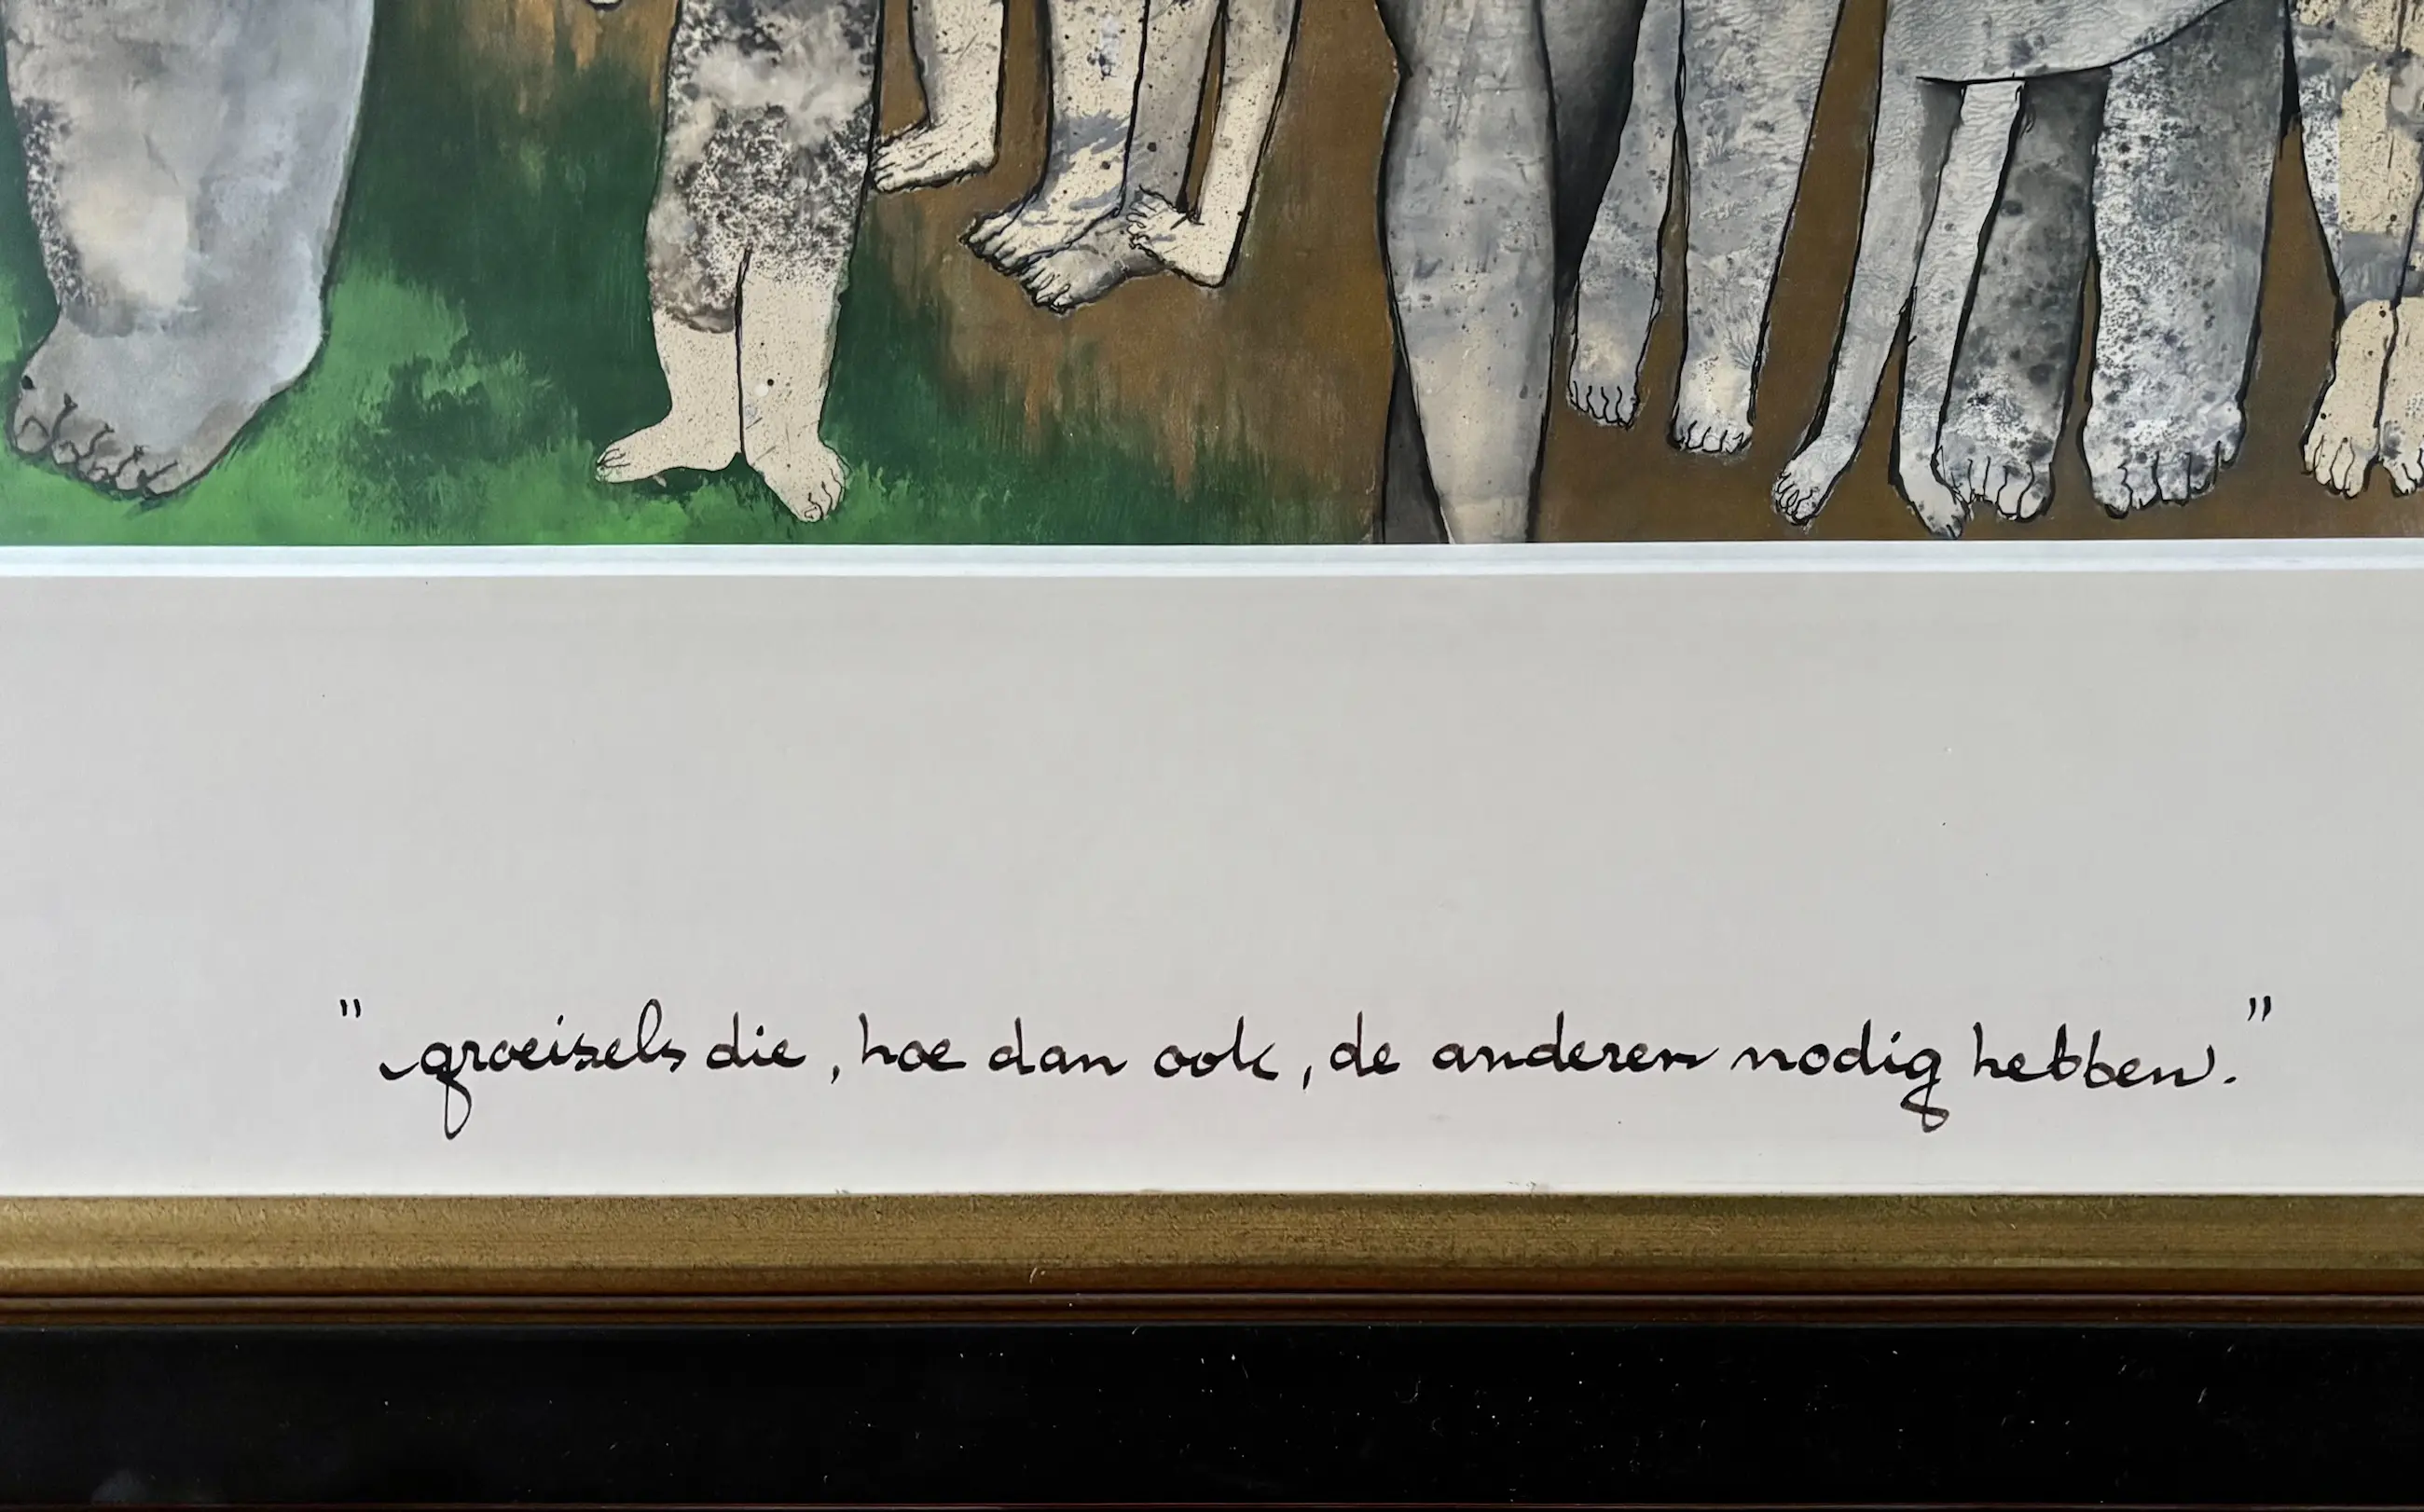 "groeisels die, hoe dan ook, de anderen nodig hebben."